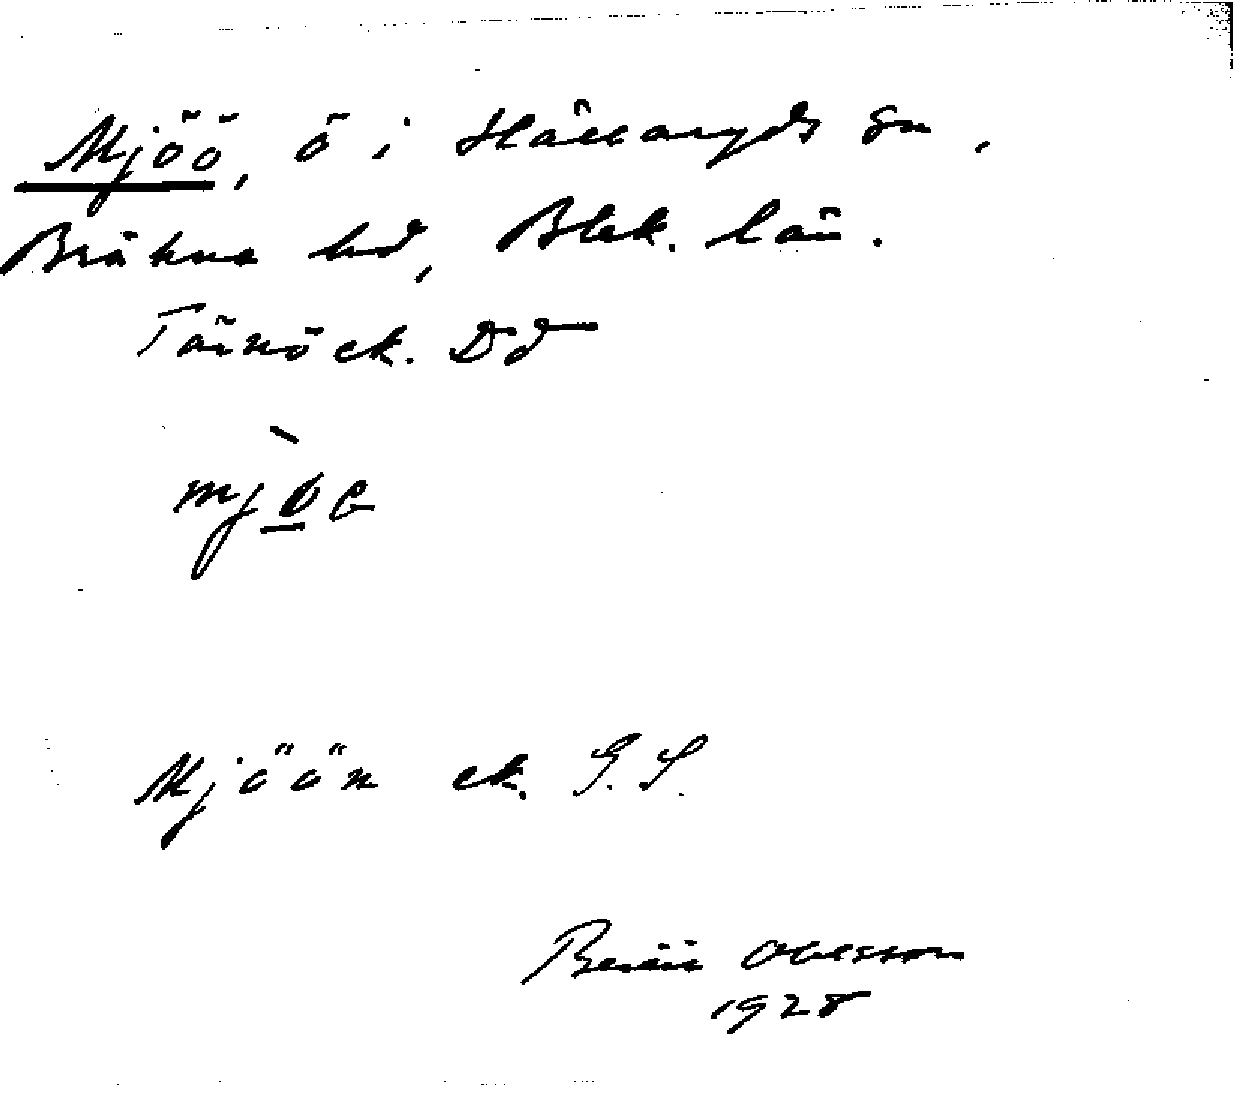 Mjöö, ö i Hällaryds sn,
Bräkne hd, Blek. län.
Tärnö ek. Dd
mjöe
Mjöön ek. G.S.
Ohlsson
1928